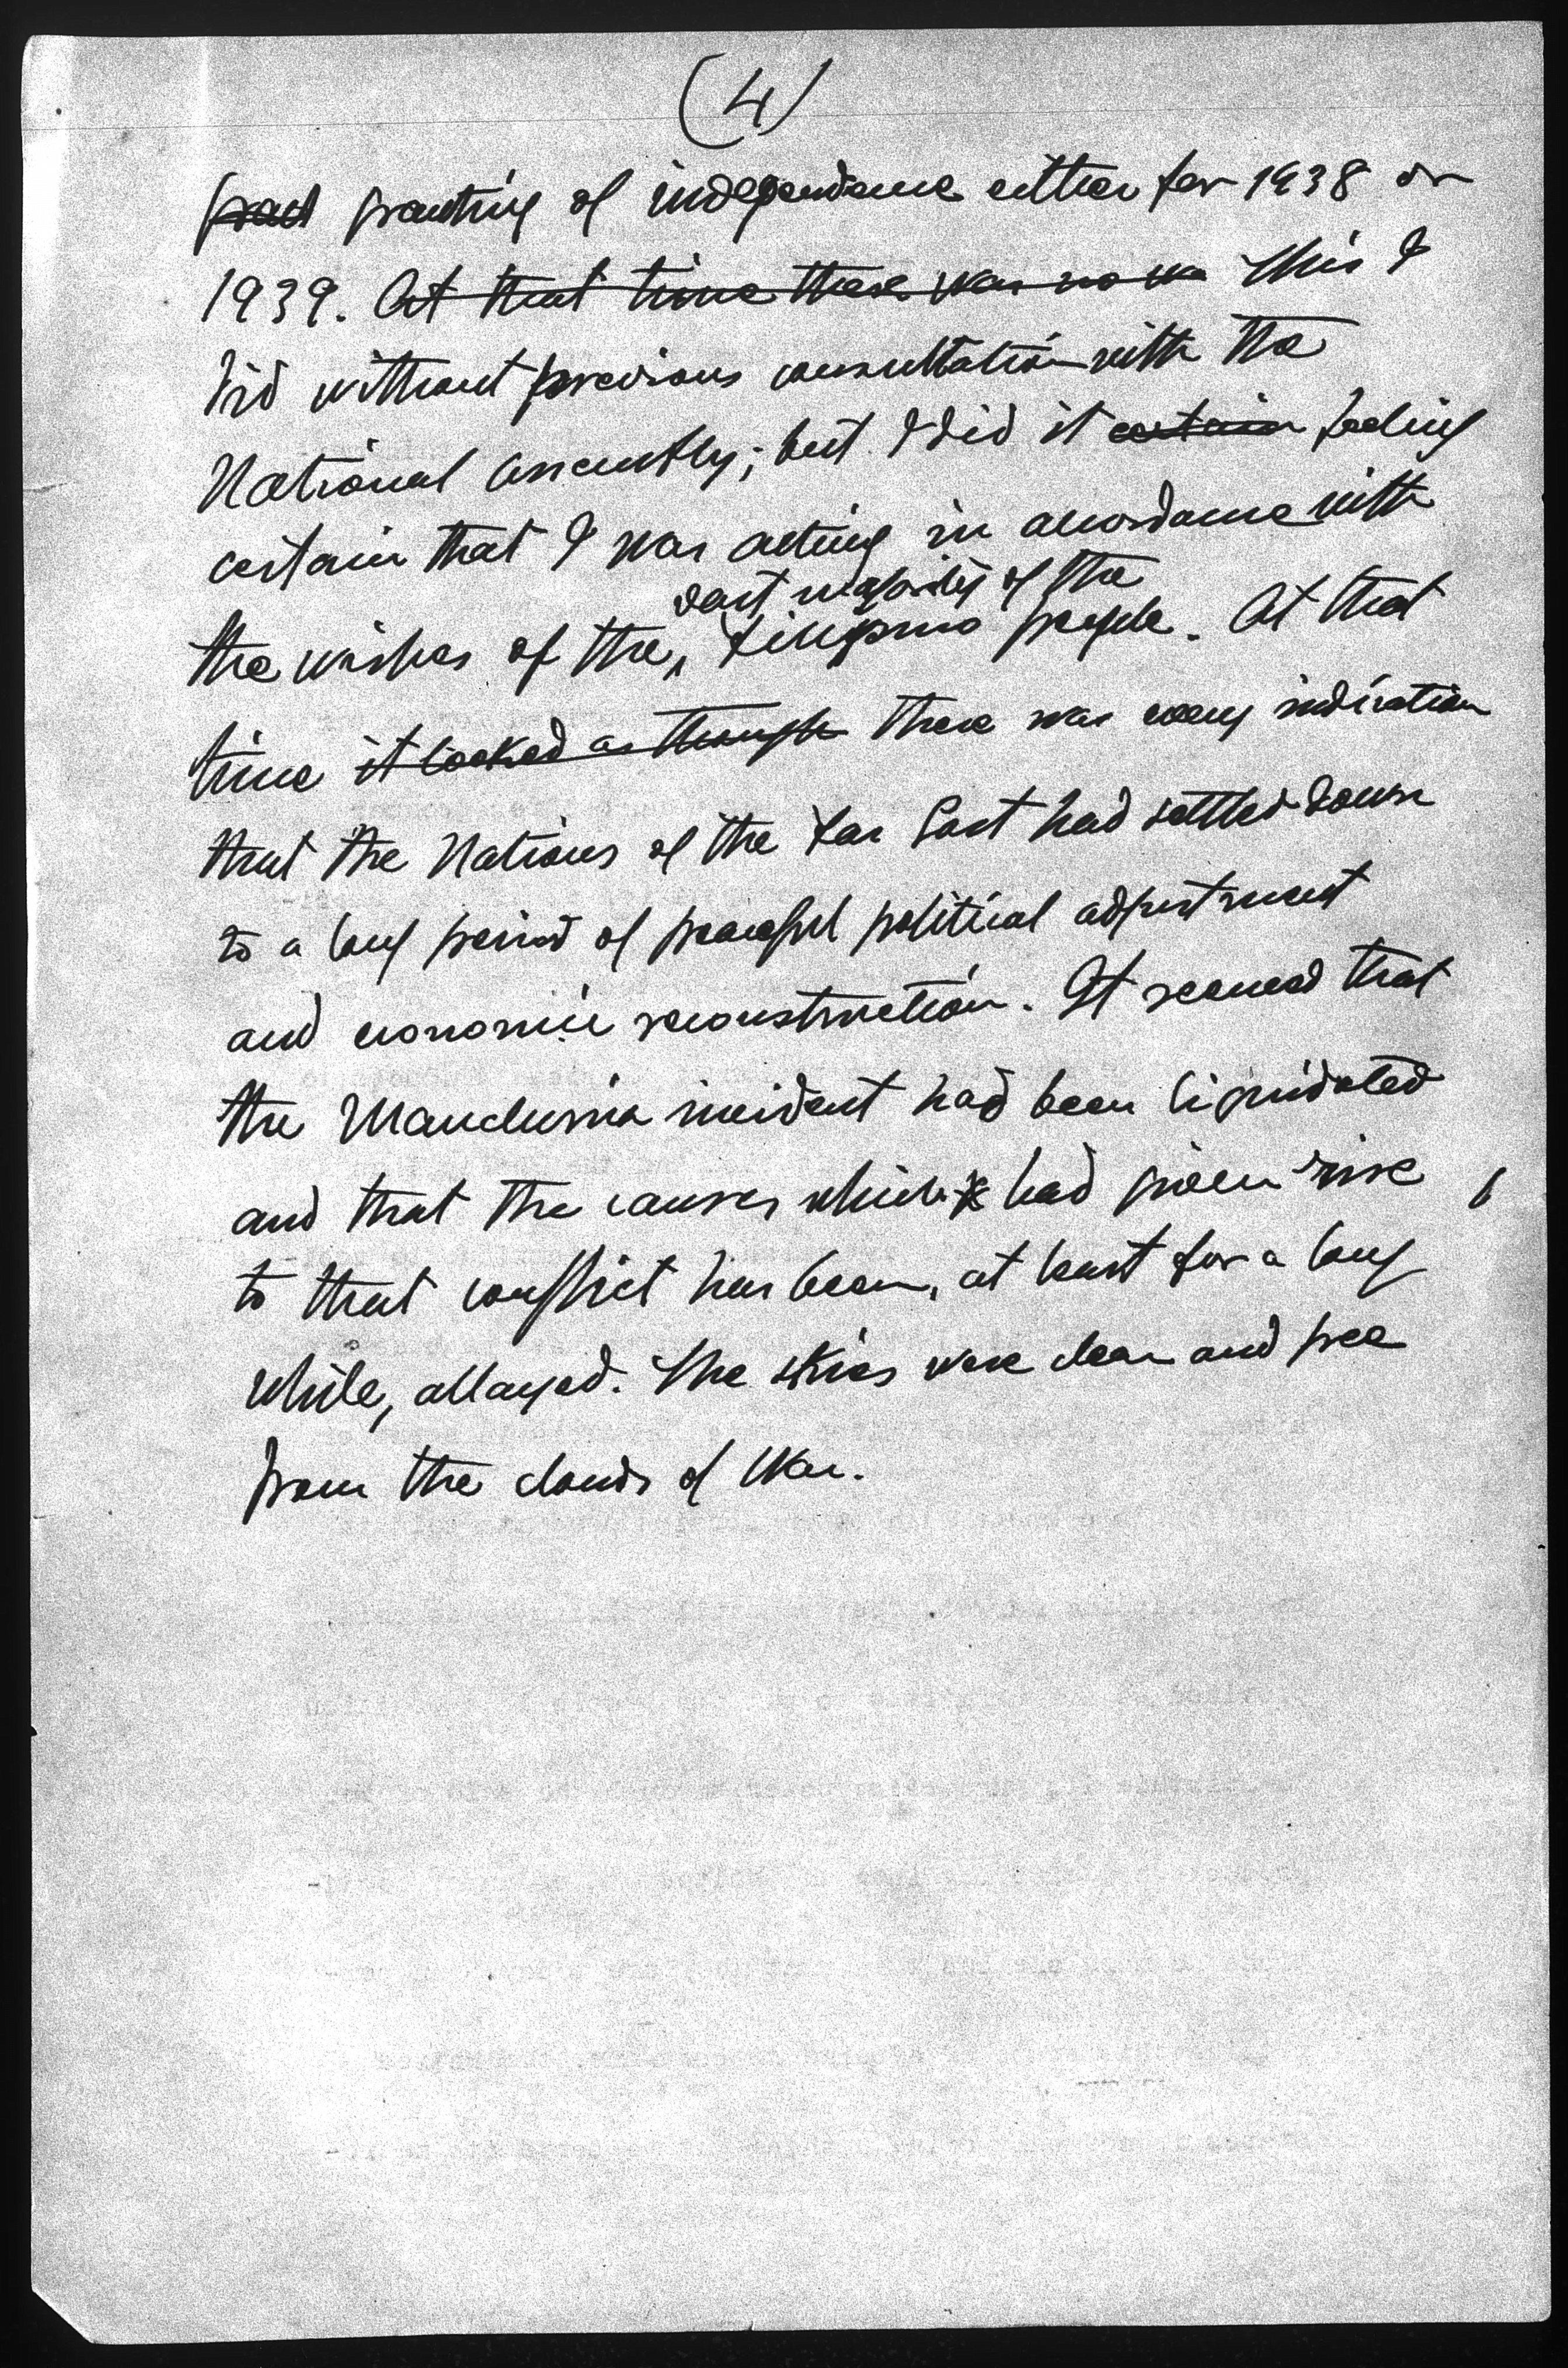 (4)
grant granting of independence either for 1938 or
1939. At that time there was no wa This I
did without previous consultation with the
National Assembly; but I did it certain feeling
certain that I was acting in accordance with
vast majority of the
the wishes of the Filipino people. At that
time it looked as though there was every indication
that the Nations of the Far East had settled down
to a long period of peaceful political adjustment
and economic reconstruction. It seemed that
the Manchuria incident had been liquidated
and that the causes which had given rise
to that conflict has been, at least for a long
while, allayed. The skies were clear and free
from the clouds of War.